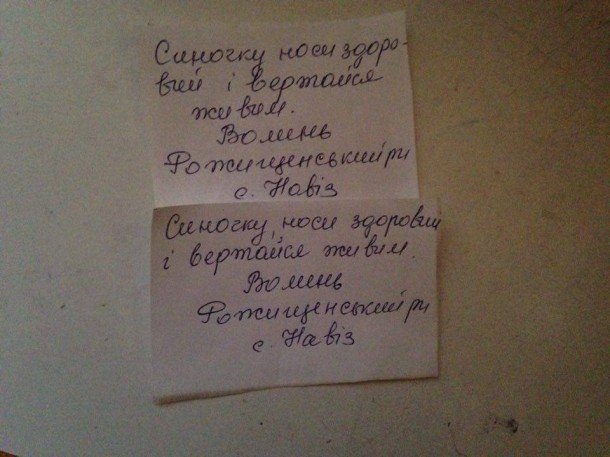 Синочку носи здоро-
вий і вертайся
живим.
Волинь
Рожищенський р-н
с. Навіз
Синочку, носи здоровий
і вертайся живим.
Волинь
Рожищенський р-н
с. Навіз